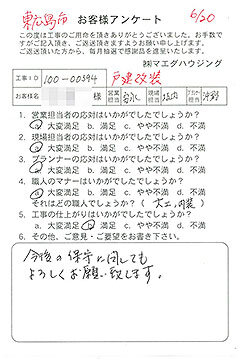 東広島市 お客様アンケート 6/20
この度は工事のご用命を頂きありがとうございました。お手数で
すがご記入頂き、ご返送頂きますようお願い申し上げます。
ご返送頂いた方から、毎月抽選で感謝品を進呈いたします。
㈱マエダハウジング
工事ID 100-00594 戸建改装
お名前 様 営業担当 現場担当 プランナー担当
1. 営業担当者の応対はいかがでしたでしょうか?
a. 大変満足 b. 満足 c. やや不満 d. 不満
2. 現場担当者の応対はいかがでしたでしょうか?
a. 大変満足 b. 満足 c. やや不満 d. 不満
3. プランナーの応対はいかがでしたでしょうか?
a. 大変満足 b. 満足 c. やや不満 d. 不満
4. 職人のマナーはいかがでしたでしょうか?
a. 大変満足 b. 満足 c. やや不満 d. 不満
それはどの職人でしょうか? ( 大工、内装 )
5. 工事の仕上がりはいかがでしたでしょうか?
a. 大変満足 b. 満足 c. やや不満 d. 不満
6. その他、ご意見・ご要望をお書き下さい。
今後の保守に関しても
よろしくお願い致します。